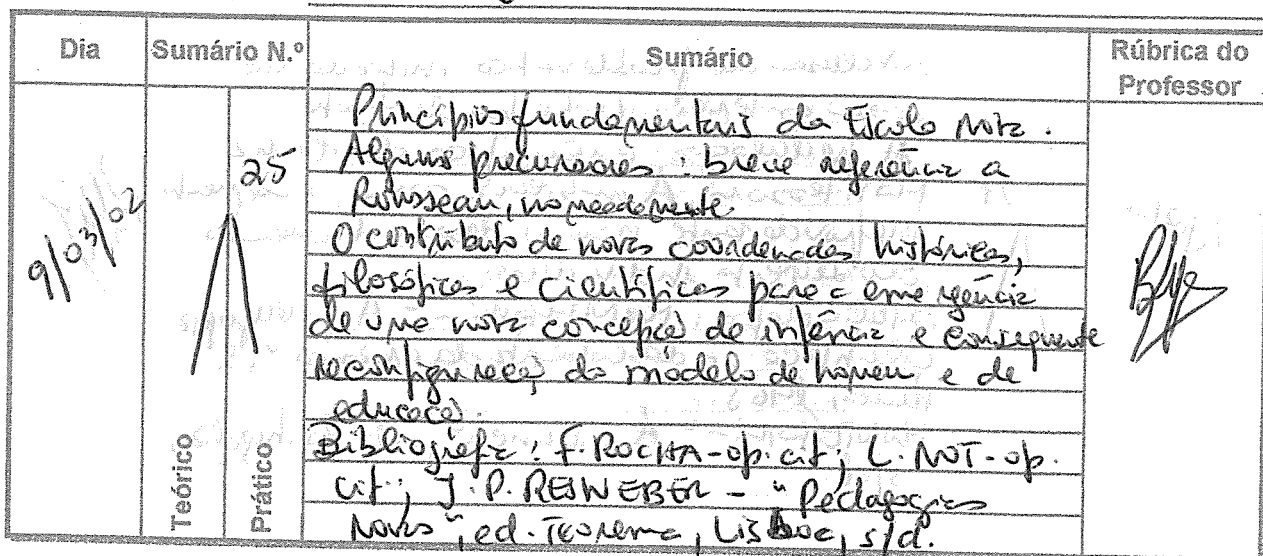 Dia Sumário N.º Sumário Rúbrica do Professor
9/03/02
25
Teórico
Prático
Princípios fundamentais da Escola Nova.
Alguns precursores: breve referência a
Rousseau, nomeadamente.
O contributo de novas coordenadas históricas,
filosóficas e científicas para a emergência
de uma nova concepção de infância e consequente
reconfiguração do modelo de homem e de
educação.
Bibliografia: F. ROCHA - op. cit; L. NOT - op.
cit.; J. P. RESWEBER - "Pedagogias
Novas", ed. Teorema, Lisboa, s/d.